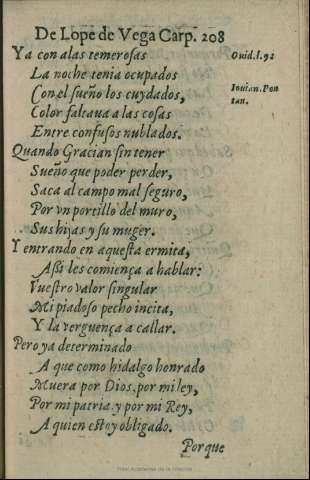 De Lope de Vega Carp. 208
Ya con alas temerosas
Ouid. l. 92
La noche tenia ocupados
Con el sueño los cuydados,
Iouian. Pon
tan.
Color faltaua a las cosas
Entre confusos nublados.
Quando Gracian sin tener
Sueño que poder perder,
Saca al campo mal seguro,
Por vn portillo del muro,
Sus hijas y su muger.
Y entrando en aquesta ermita,
Assi les comiença a hablar:
Vuestro valor singular
Mi piadoso pecho incita,
Y la verguença a callar.
Pero ya determinado
A que como hidalgo honrado
Muera por Dios, por mi ley,
Por mi patria, y por mi Rey,
A quien estoy obligado.
Porque